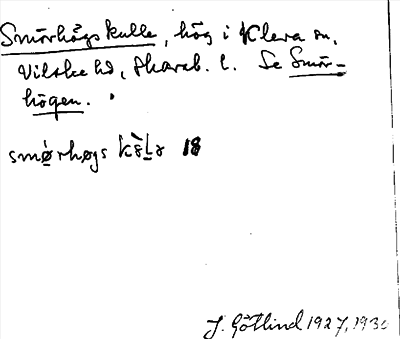 Smörhögs kulle, hög i Kleva sn,
Vilske hd, Skarab. l. Se Smör-
högen.
smørhøgs 18
J. Götlind 1927, 1930